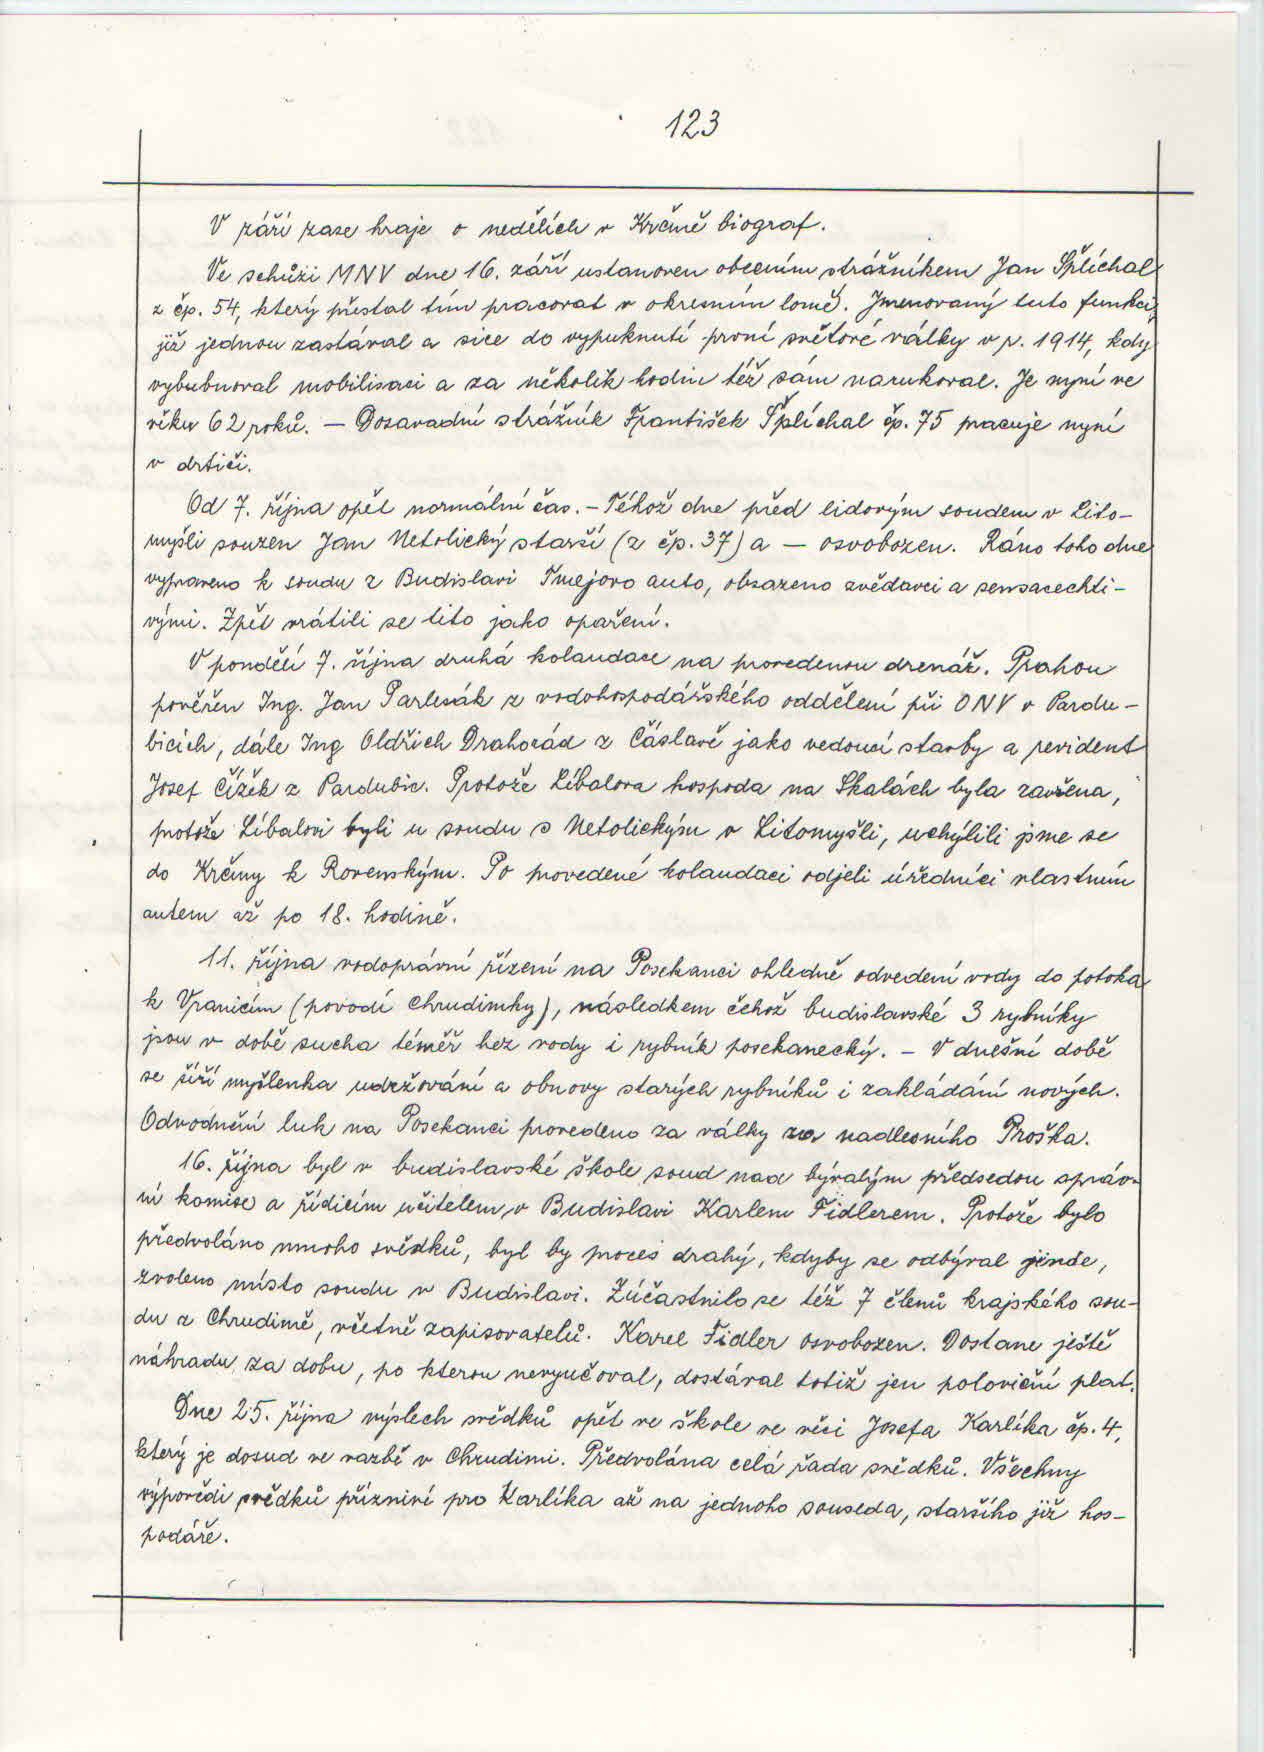 123
V září zase hraje o nedělích v Krčmě biograf.
Ve schůzi MNV dne 16. září ustanoven obecním strážníkem Jan Šplíchal
z čp. 54, který přestal tím pracovat v okresním lomě. Jmenovaný tuto funkci
již jednou zastával a sice do vypuknutí první světové války v r. 1914, kdy
vybubnoval mobilisaci a za několik hodin též sám narukoval. Je nyní ve
věku 62 roků. — Dosavadní strážník František Šplíchal čp. 75 pracuje nyní
v drtiči.
Od 7. října opět normální čas. - Téhož dne před lidovým soudem v Lito-
myšli souzen Jan Netolický starší (z čp. 37) a — osvobozen. Ráno toho dne
vypraveno k soudu z Budislavi Tmejovo auto, obsazeno zvědavci a sensacechti-
vými. Zpět vrátili se tito jako opaření.
V pondělí 7. října druhá kolaudace na provedenou drenáž. Prahou
pověřen Ing. Jan Parlesák z vodohospodářského oddělení při ONV v Pardu-
bicích, dále Ing Oldřich Drahorád z Čáslavě jako vedoucí stavby a revident
Josef Čížek z Pardubic. Protože Líbalova hospoda na Skalách byla zavřena,
protože Líbalovi byli u soudu s Netolickým v Litomyšli, uchýlili jsme se
do Krčmy k Rovenským. Po provedené kolaudaci odjeli úředníci vlastním
autem až po 18. hodině.
11. října vodoprávní řízení na Posekanci ohledně odvedení vody do potoka
k Vranicím (povodí Chrudimky), následkem čehož budislavské 3 rybníky
jsou v době sucha téměř bez vody i rybník posekanecký. - V dnešní době
se šíří myšlenka udržování a obnovy starých rybníků i zakládání nových.
Odvodnění luk na Posekanci provedeno za války za nadlesního Proška.
16. října byl v budislavské škole soud nad bývalým předsedou správ-
ní komise a řídicím učitelem v Budislavi Karlem Fidlerem. Protože bylo
předvoláno mnoho svědků, byl by proces drahý, kdyby se odbýval jinde,
zvoleno místo soudu v Budislavi. Zúčastnilo se též 7 členů krajského sou-
du z Chrudimě, včetně zapisovatelů. Karel Fidler osvobozen. Dostane ještě
náhradu za dobu, po kterou nevyučoval, dostával totiž jen poloviční plat.
Dne 25. října výslech svědků opět ve škole ve věci Josefa Karlíka čp. 4,
který je dosud ve vazbě v Chrudimi. Předvolána celá řada svědků. Všechny
výpovědi svědků příznivé pro Karlíka až na jednoho souseda, staršího již hos-
podáře.